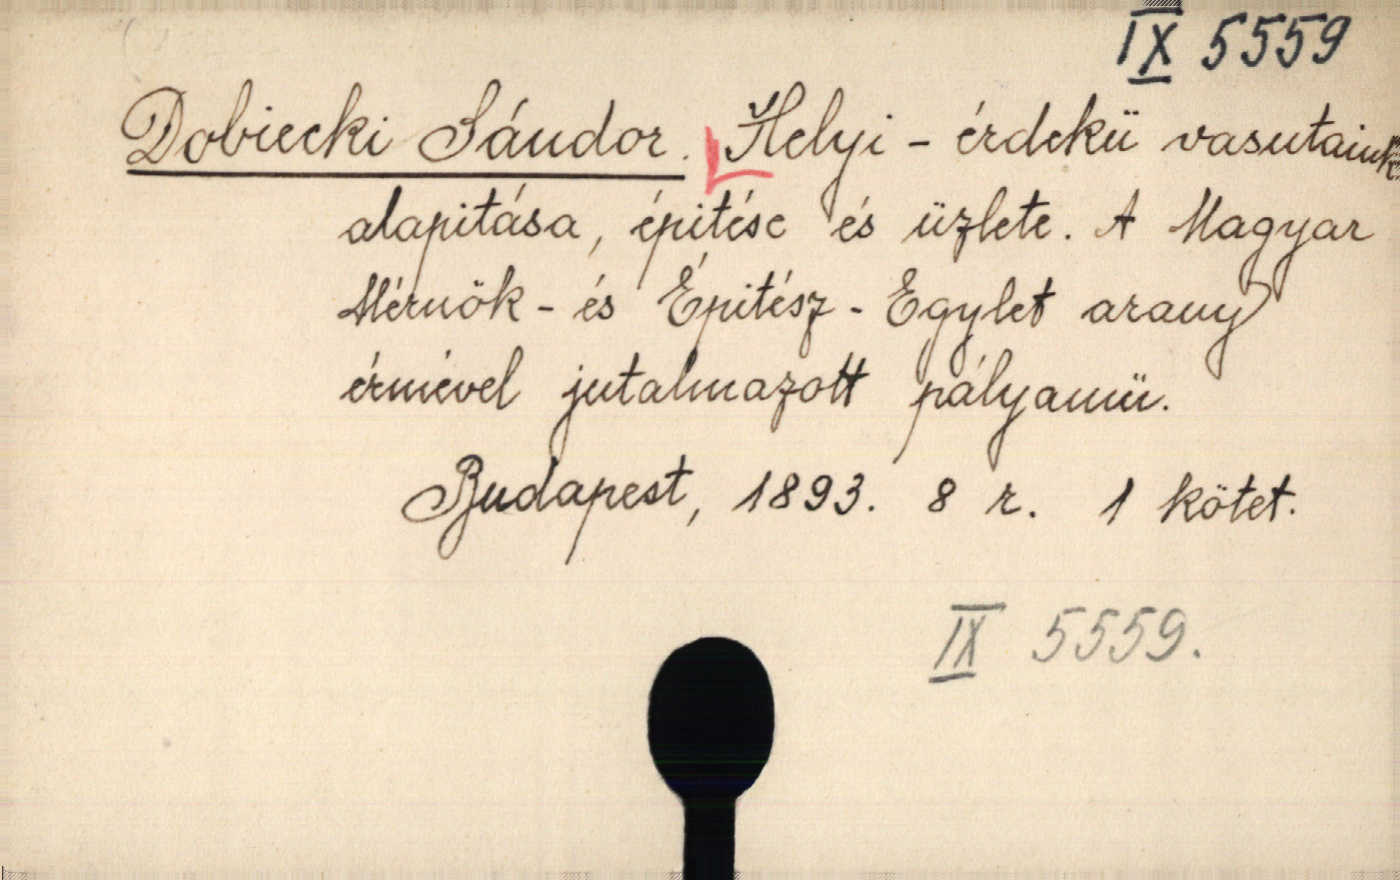 IX 5559
Dobiecki Sándor. Helyi - érdekü vasutaink
alapitása, épitése és üzlete. A Magyar
Mérnök - és Épitész - Egylet arany
érmével jutalmazott pályamü.
Budapest, 1893. 8 r. 1 kötet.
IX 5559.